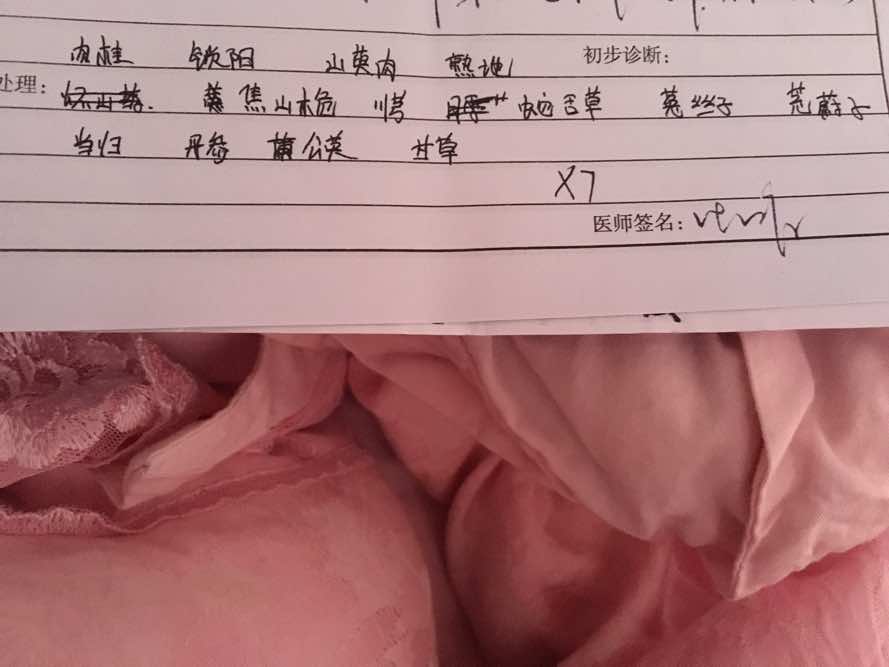 肉桂 锁阳 山萸肉 熟地 初步诊断:
处理: 怀山药. 焦山栀 川芎 蛇舌草 菟丝子 茺蔚子
当归 丹参 蒲公英 甘草
X7
医师签名: